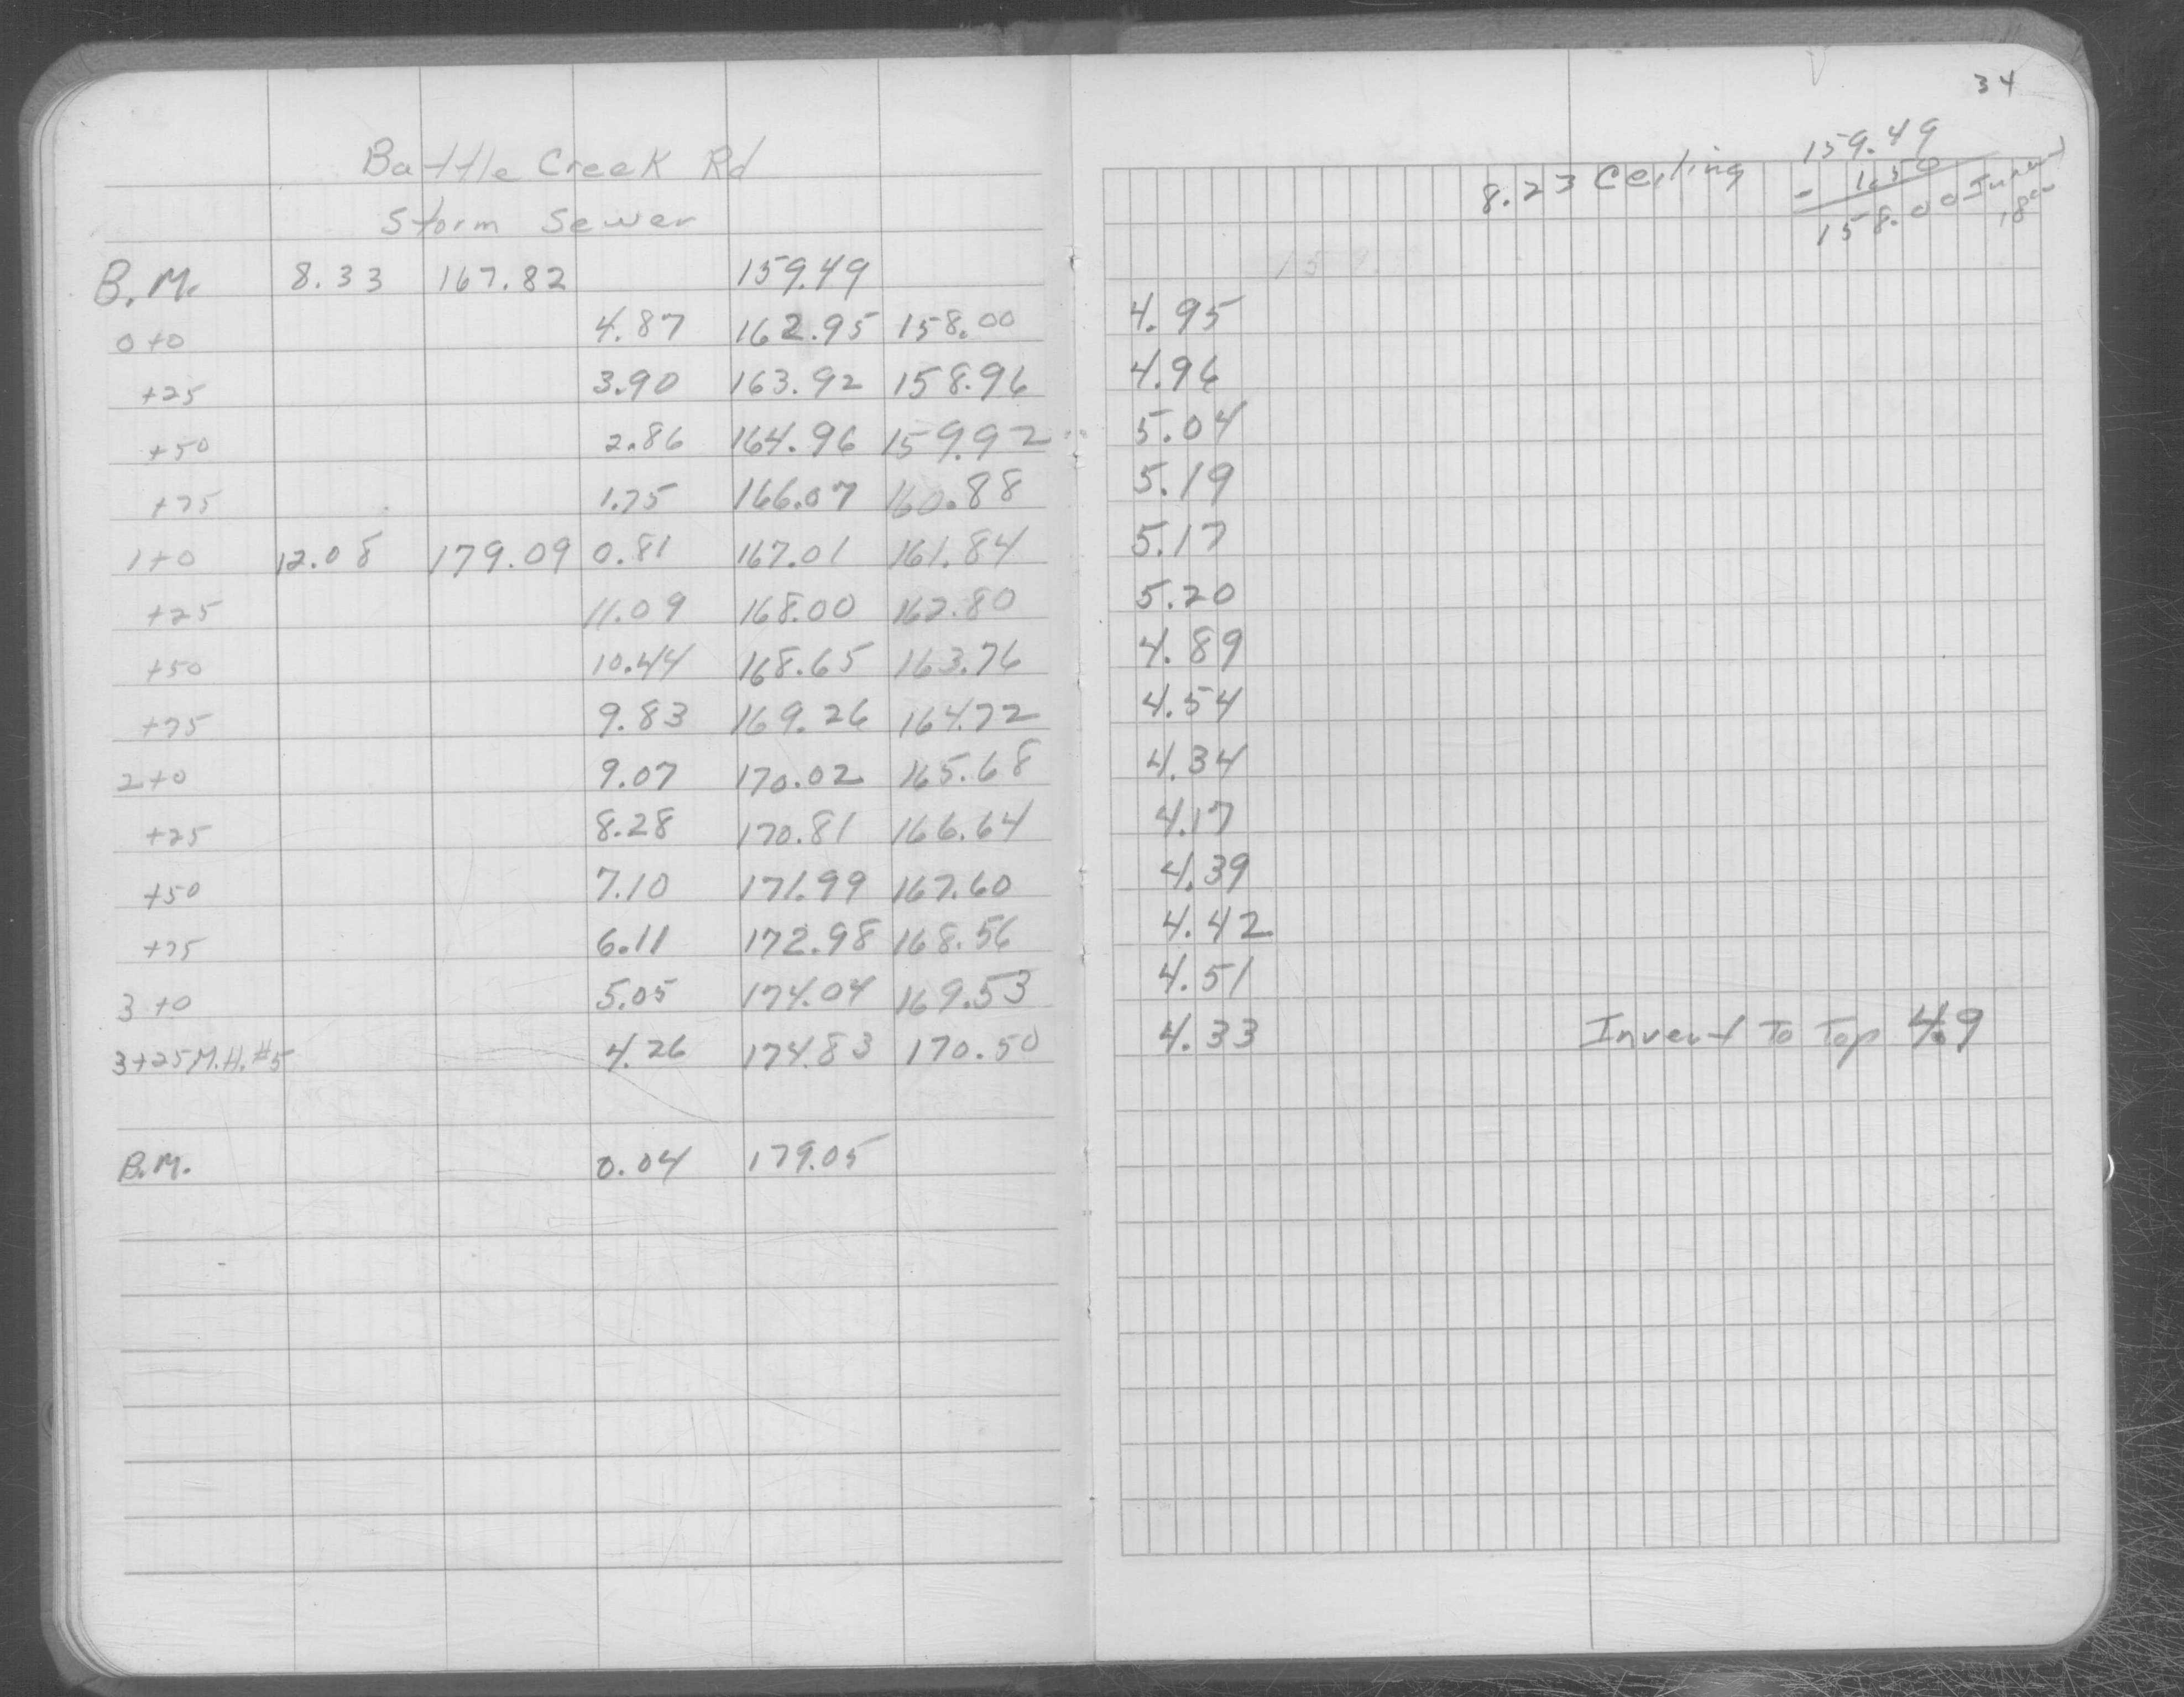 Battle Creek Rd
Storm Sewer
B.M. 8.33 167.82 159.49
0+0 4.87 162.95 158.00
+25 3.90 163.92 158.96
+50 2.86 164.96 159.92
+75 1.75 166.07 160.88
1+0 12.08 179.09 0.81 167.01 161.84
+25 11.09 168.00 162.80
+50 10.44 168.65 163.76
+75 9.83 169.26 164.72
2+0 9.07 170.02 165.68
+25 8.28 170.81 166.64
+50 7.10 171.99 167.60
+75 6.11 172.98 168.56
3+0 5.05 174.04 169.53
3+25 M.H. #5 4.26 174.83 170.50
B.M. 0.04 179.05
34
8.23 Ceiling
159.49
- 1.50
158.00 Invert
4.95
4.96
5.04
5.19
5.17
5.20
4.89
4.54
4.34
4.17
4.39
4.42
4.51
4.33 Invert To Top 4.9